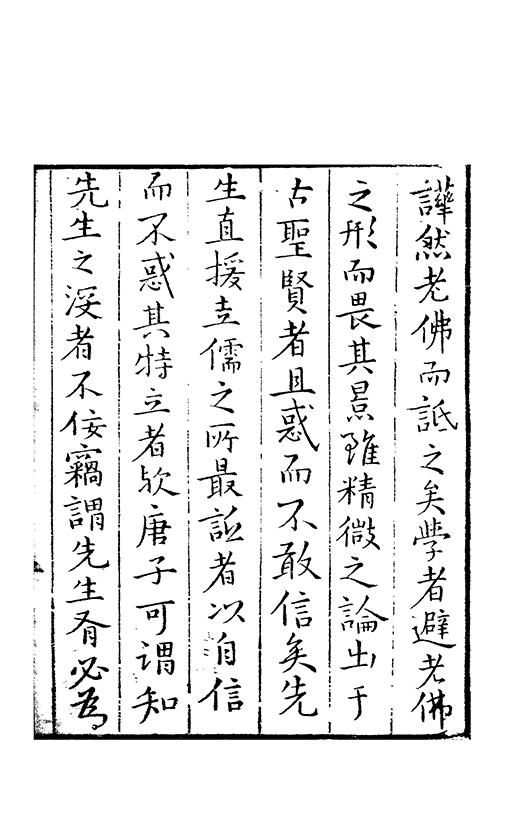 譁然老佛而詆之矣學者避老佛
之形而畏其景雖精微之論出于
古聖賢者且惑而不敢信矣先
生直援世儒之所最詆者以自信
而不惑其特立者歟唐子可謂知
先生之深者不佞竊謂先生有必為